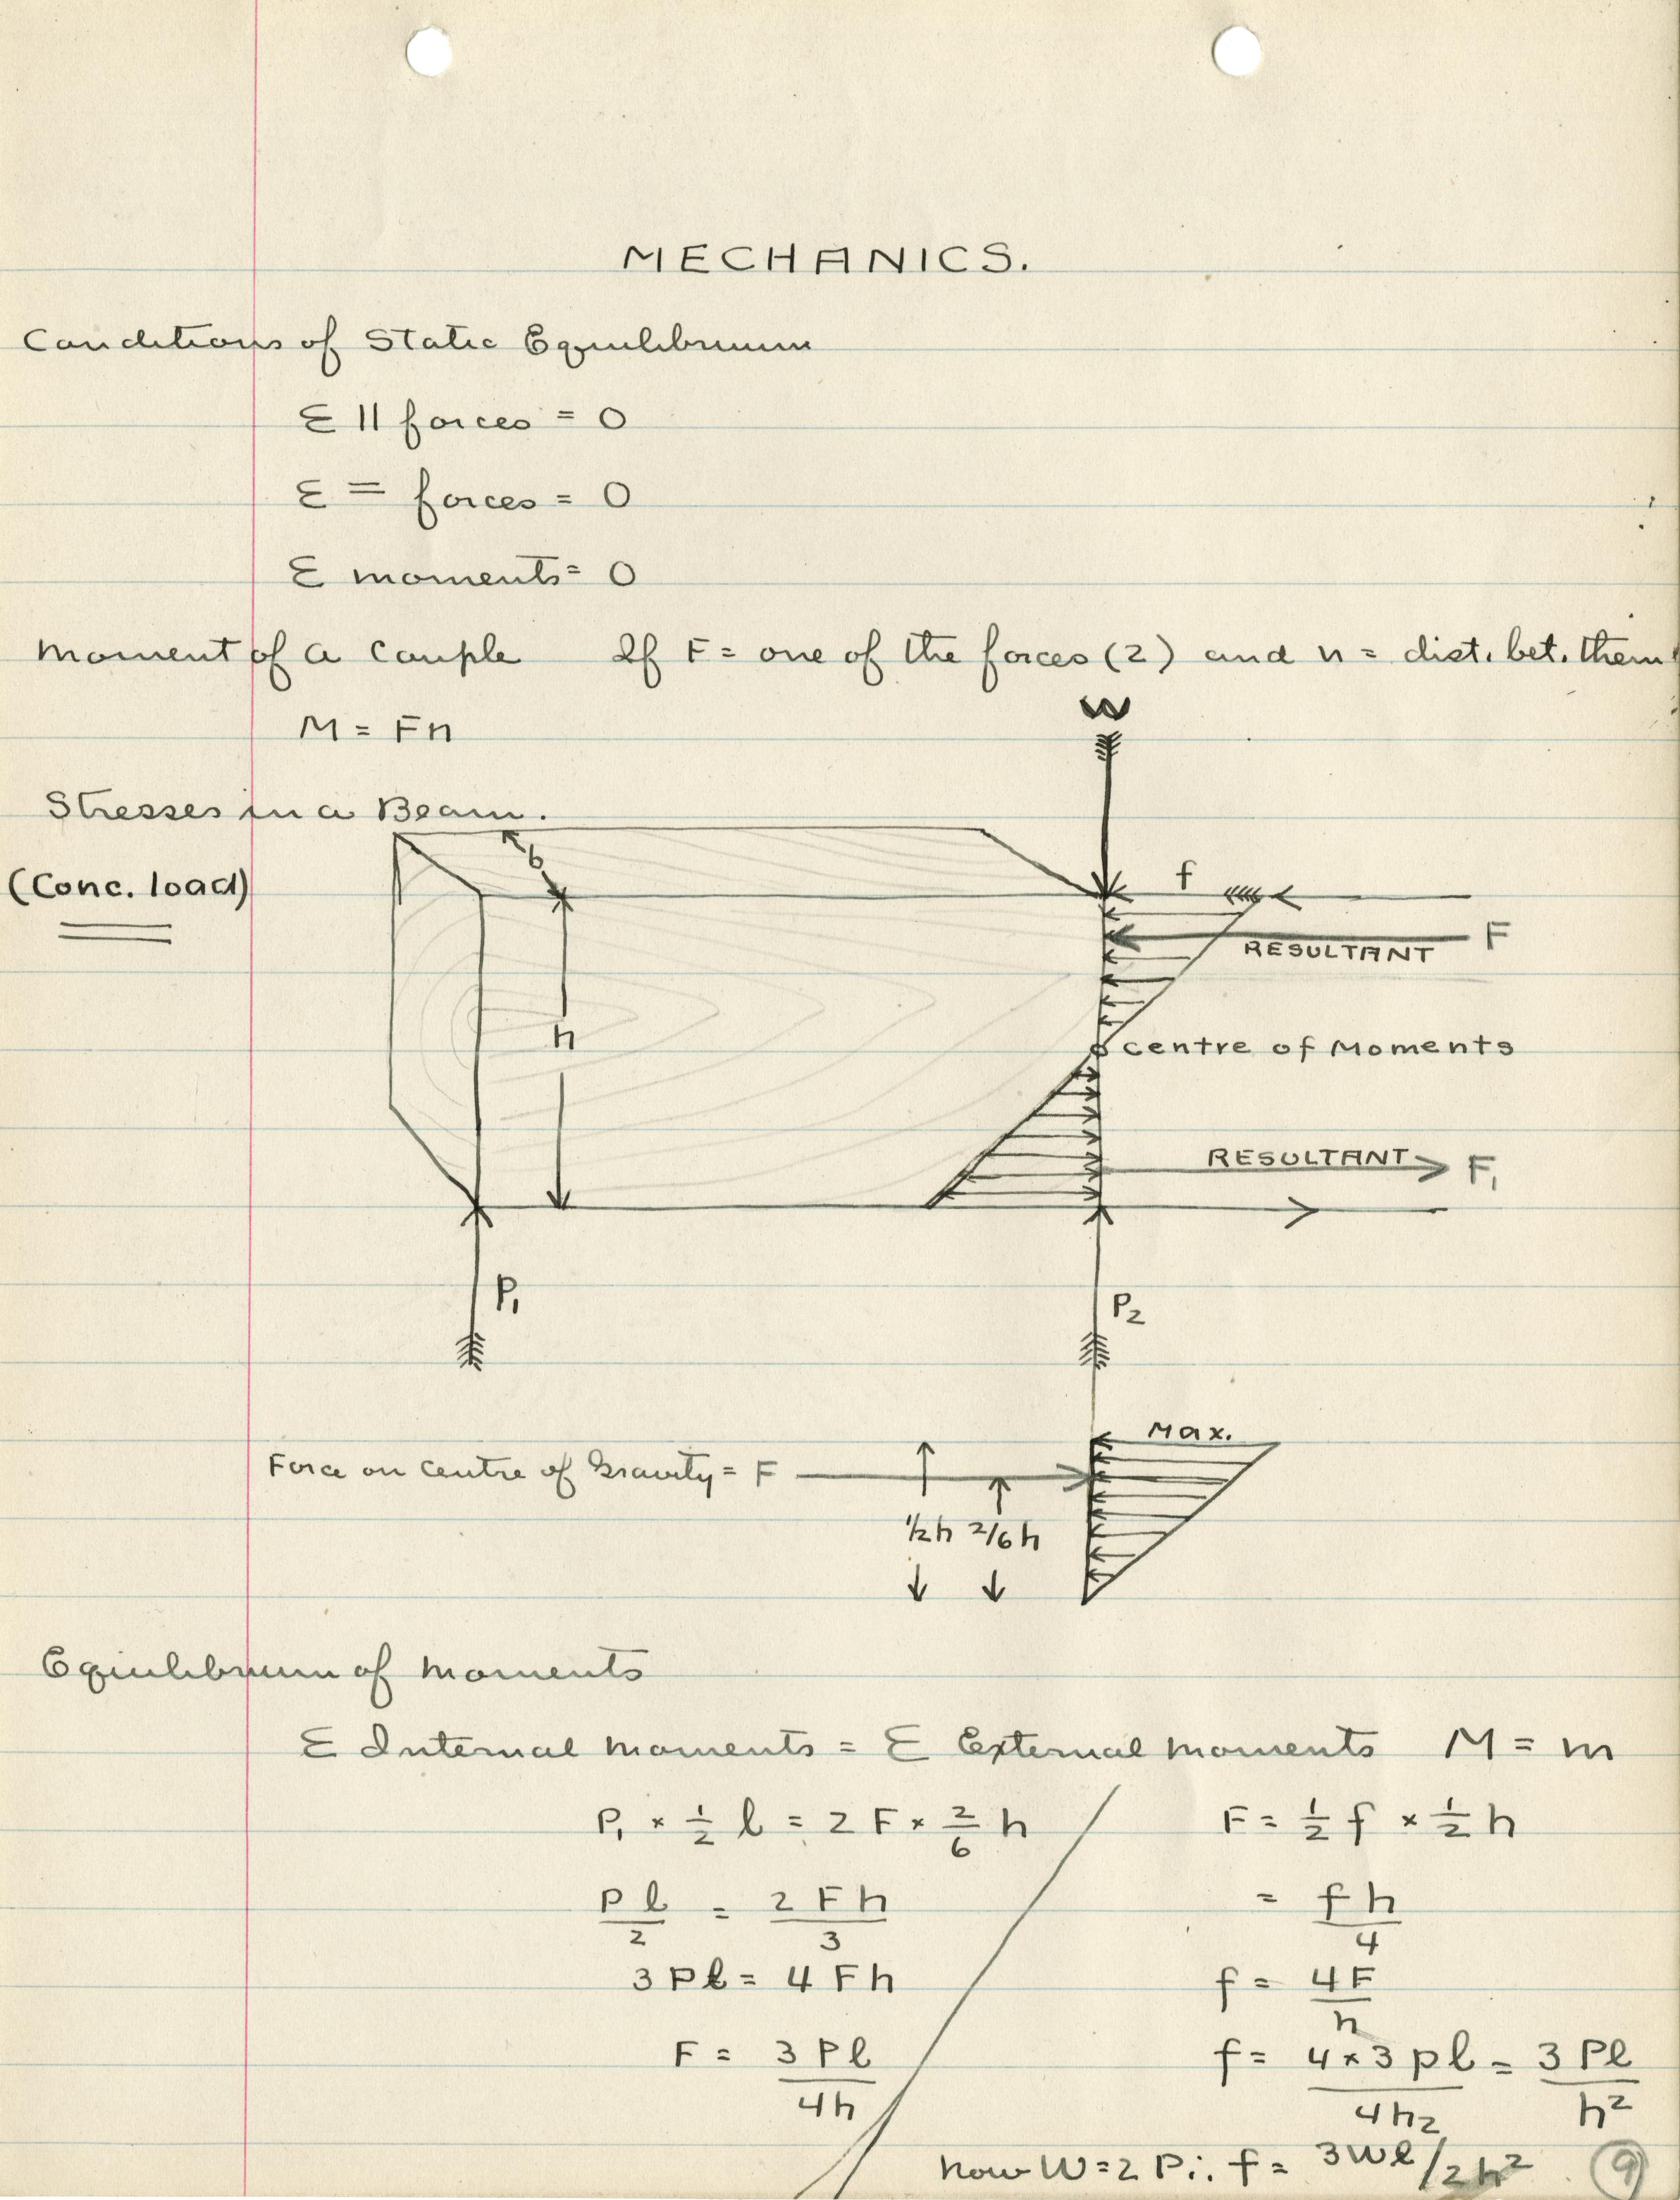 MECHANICS.
Conditions of Static Equilibrium
Σ || forces = 0
Σ = forces = 0
Σ moments = 0
Moment of a Couple If F = one of the forces (2) and n = dist. bet. them
M = Fn
W
Stresses in a Beam.
(Conc. load)
b
f
F
RESULTANT
h
centre of Moments
RESULTANT
F₁
P₁
P₂
Max.
Force on centre of Gravity = F
½h 2/6 h
Equilibrium of Moments
Σ Internal Moments = Σ External Moments M = m
P₁ × 1/2 l = 2F × 2/6 h F = 1/2 f × 1/2 h
Pl/2 = 2Fh/3 = fh/4
3Pl = 4Fh f = 4F/h
F = 3Pl/4h f = 4×3pl/4h₂ = 3Pl/h²
now W = 2P ∴ f = 3Wl/2h² 9